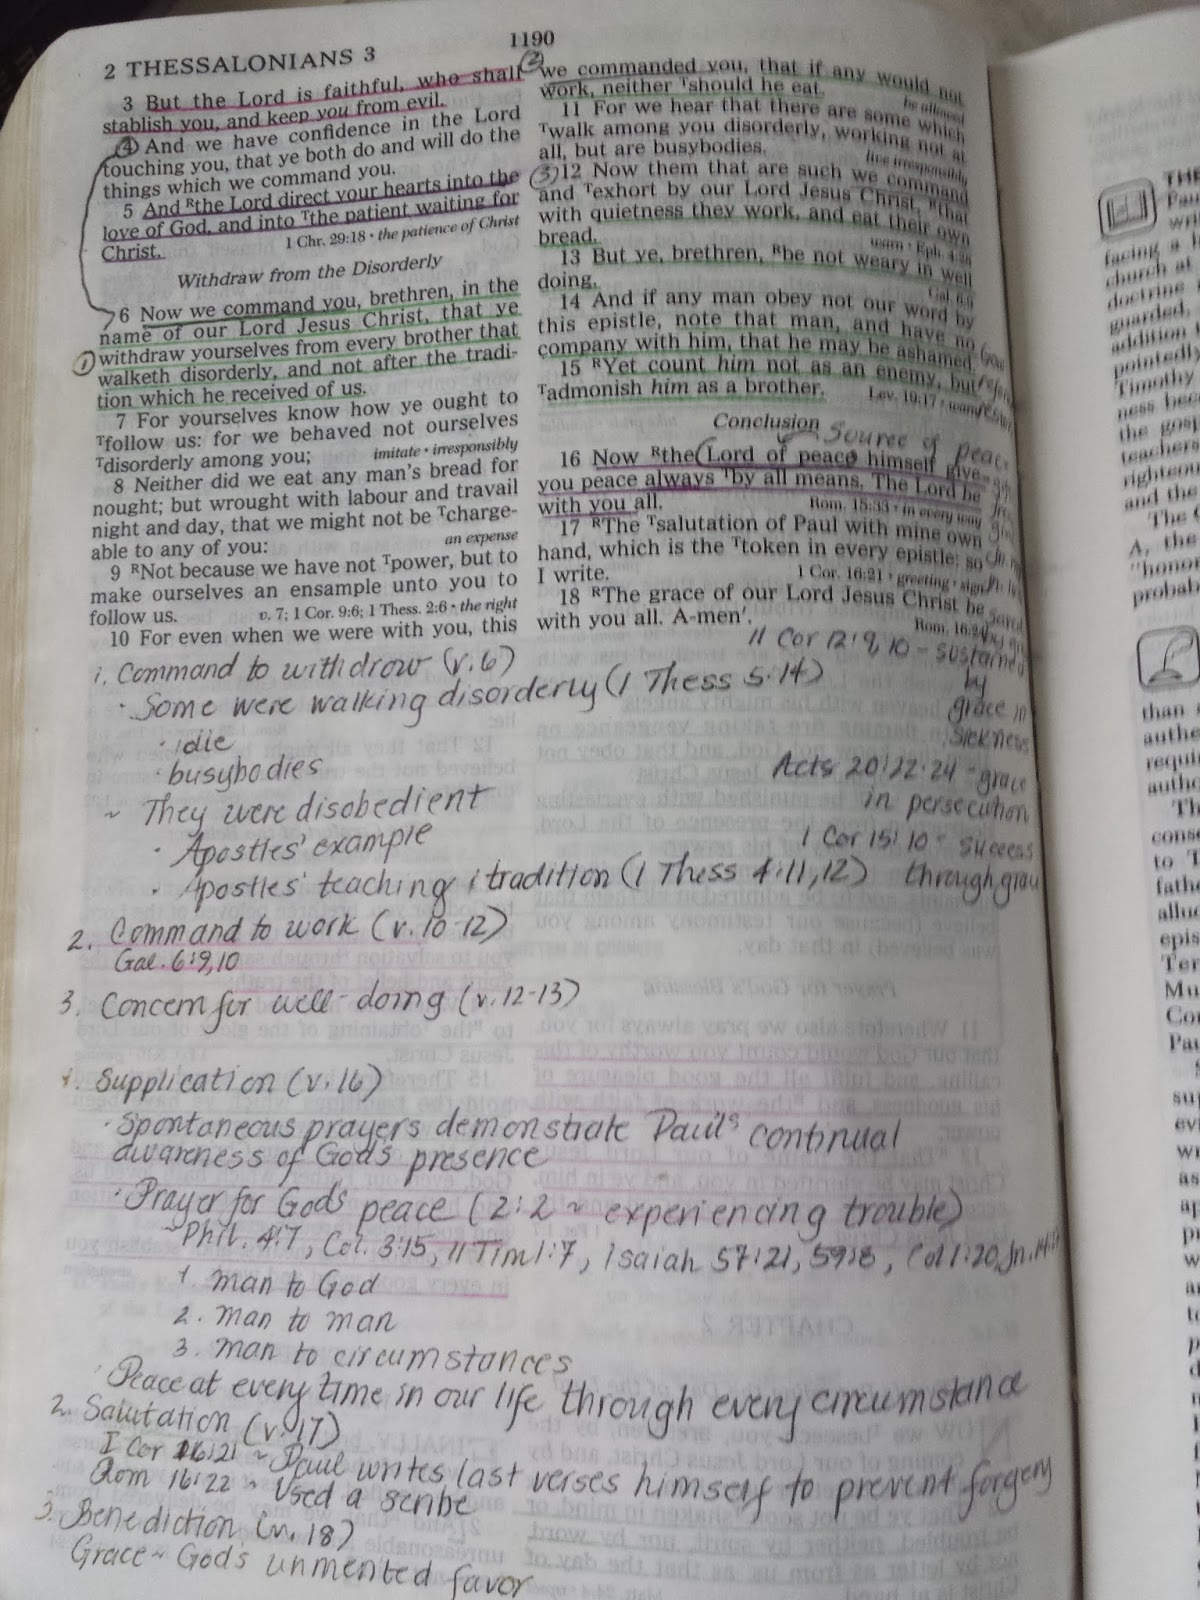 2 THESSALONIANS 3
1190
3 But the Lord is faithful, who shall
stablish you, and keep you from evil.
4 And we have confidence in the Lord
touching you, that ye both do and will do the
things which we command you.
5 And ᴿthe Lord direct your hearts into the
love of God, and into ᵀthe patient waiting for
Christ.
1 Chr. 29:18 • the patience of Christ
Withdraw from the Disorderly
6 Now we command you, brethren, in the
name of our Lord Jesus Christ, that ye
① withdraw yourselves from every brother that
walketh disorderly, and not after the tradi-
tion which he received of us.
7 For yourselves know how ye ought to
ᵀfollow us: for we behaved not ourselves
ᵀdisorderly among you;
imitate • irresponsibly
8 Neither did we eat any man's bread for
nought; but wrought with labour and travail
night and day, that we might not be ᵀcharge-
able to any of you:
an expense
9 ᴿNot because we have not ᵀpower, but to
make ourselves an ensample unto you to
follow us.
v. 7; 1 Cor. 9:6; 1 Thess. 2:6 • the right
10 For even when we were with you, this
② we commanded you, that if any would not
work, neither ᵀshould he eat.
be allowed
11 For we hear that there are some which
ᵀwalk among you disorderly, working not at
all, but are busybodies.
live irresponsibly
③ 12 Now them that are such we command
and ᵀexhort by our Lord Jesus Christ, ᴿthat
with quietness they work, and eat their own
bread.
warn • Eph. 4:28
13 But ye, brethren, ᴿbe not weary in well
doing.
Gal. 6:9
14 And if any man obey not our word by
this epistle, note that man, and have no
company with him, that he may be ashamed.
15 ᴿYet count him not as an enemy, but
ᵀadmonish him as a brother.
Lev. 19:17 • warn
Conclusion
Source of peace
16 Now ᴿthe Lord of peace himself give
you peace always ᵀby all means. The Lord be
with you all.
Rom. 15:33 • in every way
17 ᴿThe ᵀsalutation of Paul with mine own
hand, which is the ᵀtoken in every epistle: so
I write.
1 Cor. 16:21 • greeting • sign
18 ᴿThe grace of our Lord Jesus Christ be
with you all. A-men′.
Rom. 16:24
11 Cor 12:9,10 - sustained
by
grace in
sickness
Acts 20:22-24 - grace
in persecution
1 Cor 15:10 - success
through
1. Command to withdrow (v.6)
· Some were walking disorderly (1 Thess 5:14)
· idle
· busybodies
~ They were disobedient
· Apostles' example
· Apostles' teaching & tradition (1 Thess 4:11,12)
2. Command to work (v.10-12)
Gal. 6:9,10
3. Concern for well-doing (v.12-13)
1. Supplication (v.16)
· Spontaneous prayers demonstrate Paul's continual
awareness of God's presence
· Prayer for God's peace (2:2 ~ experiencing trouble)
~ Phil. 4:7, Col. 3:15, 11 Tim 1:7, Isaiah 57:21, 59:8, Col 1:20, Jn.
1. man to God
2. man to man
3. man to circumstances
· Peace at every time in our life through every circumstance
2. Salutation (v.17)
I Cor 16:21 ~ Paul writes last verses himself to prevent forgery
Rom 16:22 ~ Used a scribe
3. Benediction (v. 18)
Grace ~ God's unmerited favor